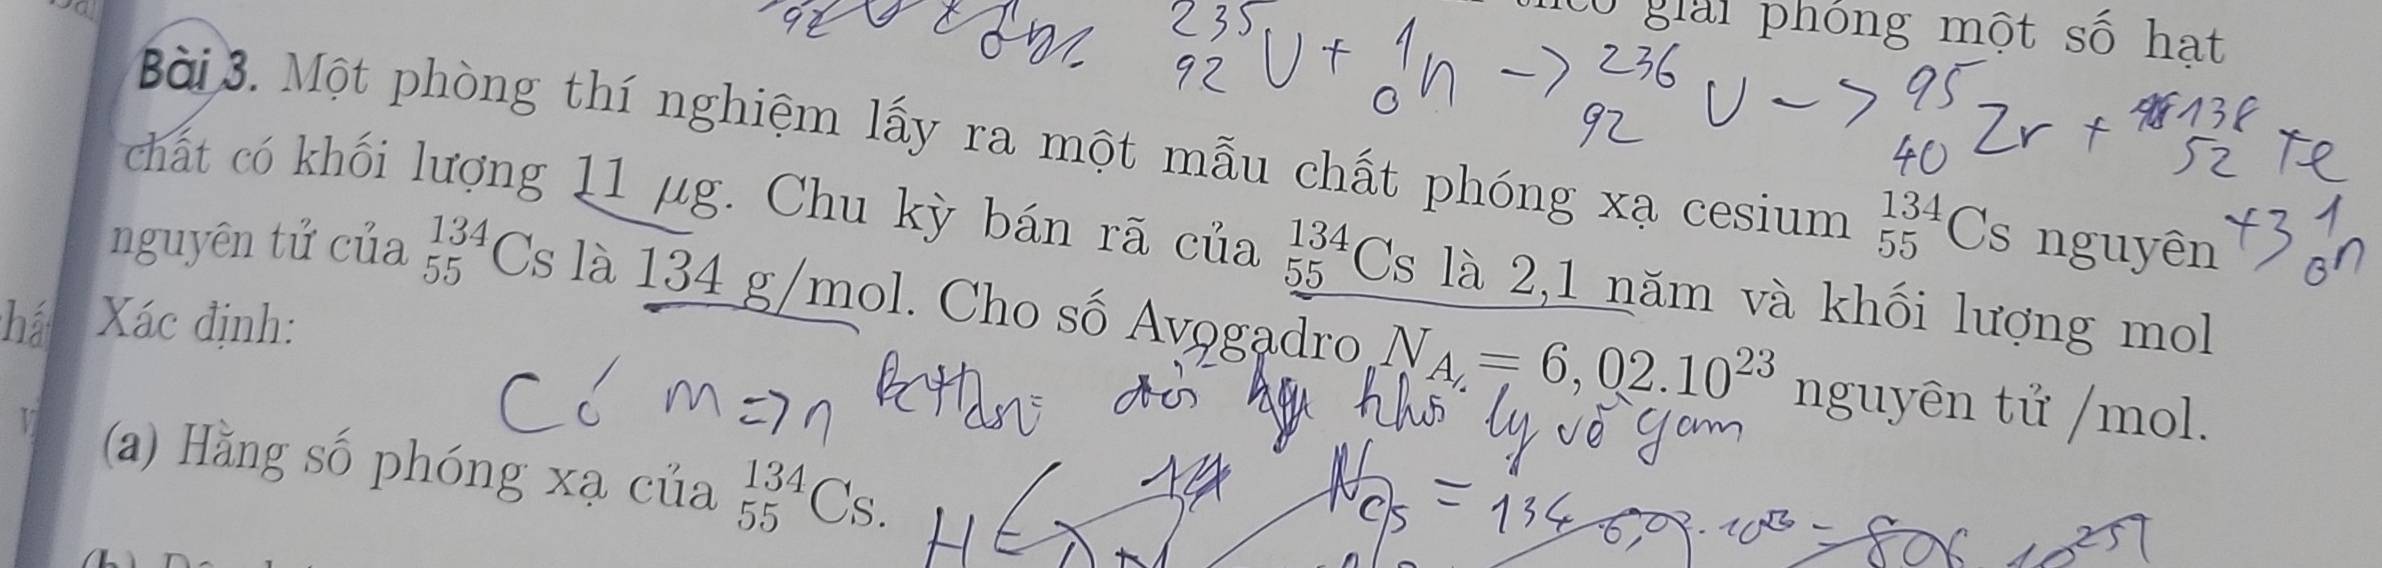 giải phóng một số hạt
²³⁵₉₂U + ¹₀n -> ²³⁶₉₂U -> ⁹⁵₄₀Zr + ¹³⁸₅₂Te
+3 ¹₀n
Bài 3. Một phòng thí nghiệm lấy ra một mẫu chất phóng xạ cesium ¹³⁴₅₅Cs nguyên
chất có khối lượng 11 μg. Chu kỳ bán rã của ¹³⁴₅₅Cs là 2,1 năm và khối lượng mol
nguyên tử của ¹³⁴₅₅Cs là 134 g/mol. Cho số Avogadro N_A = 6,02.10²³ nguyên tử /mol.
Xác định:
Có m => n
về gam
(a) Hằng số phóng xạ của ¹³⁴₅₅Cs.